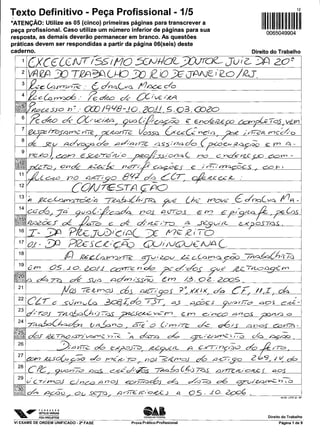 Texto Definitivo - Peça Profissional - 1/5
12
*ATENÇÃO: Utilize as 05 (cinco) primeiras páginas para transcrever a
peça profissional. Caso utilize um número inferior de páginas para sua
resposta, as demais deverão permanecer em branco. As questões
práticas devem ser respondidas a partir da página 06(seis) deste
caderno.
0065049904
Direito do Trabalho
1 EXCELENTÍSSIMO SENHOR DOUTOR JUIZ DA 20ª
2 VARA DO TRABALHO DO RIO DE JANEIRO/RJ.
3 Reclamante: Ednalva Macedo
4 Reclamado: Pedro de Oliveira
5 Processo nº: 0001948-10.2011.5.03.0020
6 Pedro de Oliveira, qualificação e endereço completos, vem
7 respeitosamente, perante Vossa Excelência, por intermédio
8 de seu advogado adiante assinado (procuração em a-
9 nexo), com escritório profissional no endereço com-
10 pleto, onde recebe notificações e intimações, com
11 fulcro no artigo 847 da CLT, oferecer
12 CONTESTAÇÃO
13 à Reclamatória Trabalhista que lhe move Ednalva Ma-
14 cedo, já qualificada nos autos em epígrafe, pelas
15 razões de fato e de direito a seguir expostas.
16 I- DA PREJUDICIAL DE MÉRITO
17 01- DA PRESCRIÇÃO QUINQUENAL
18 A Reclamante ajuizou Reclamação Trabalhista
19 em 05.10.2011 contendo pedidos que retroagem
20 à data de sua admissão em 13.02.2005.
21 Nos termos dos artigos 7º, XXIX, da CF, 11, I, da
22 CLT e súmula 308, I do TST, as ações quanto aos cré-
23 ditos trabalhistas prescrevem em cinco anos para o
24 trabalhador urbano, até o limite de dois anos conta-
25 dos retroativamente à data do ajuizamento da ação.
26 Diante do exposto, requer a extinção do feito
27 com resolução do mérito, nos termos do artigo 269, IV, do
28 CPC, quanto aos créditos trabalhistas anteriores aos
29 últimos cinco anos contados da data do ajuizamento
30 da ação, ou seja, anteriores a 05.10.2006.
FUNDAÇÃO GETULIO VARGAS
FGV PROJETOS
OAB
Direito do Trabalho
VI EXAME DE ORDEM UNIFICADO - 2ª FASE
Prova Prático-Profissional
Página 1 de 9